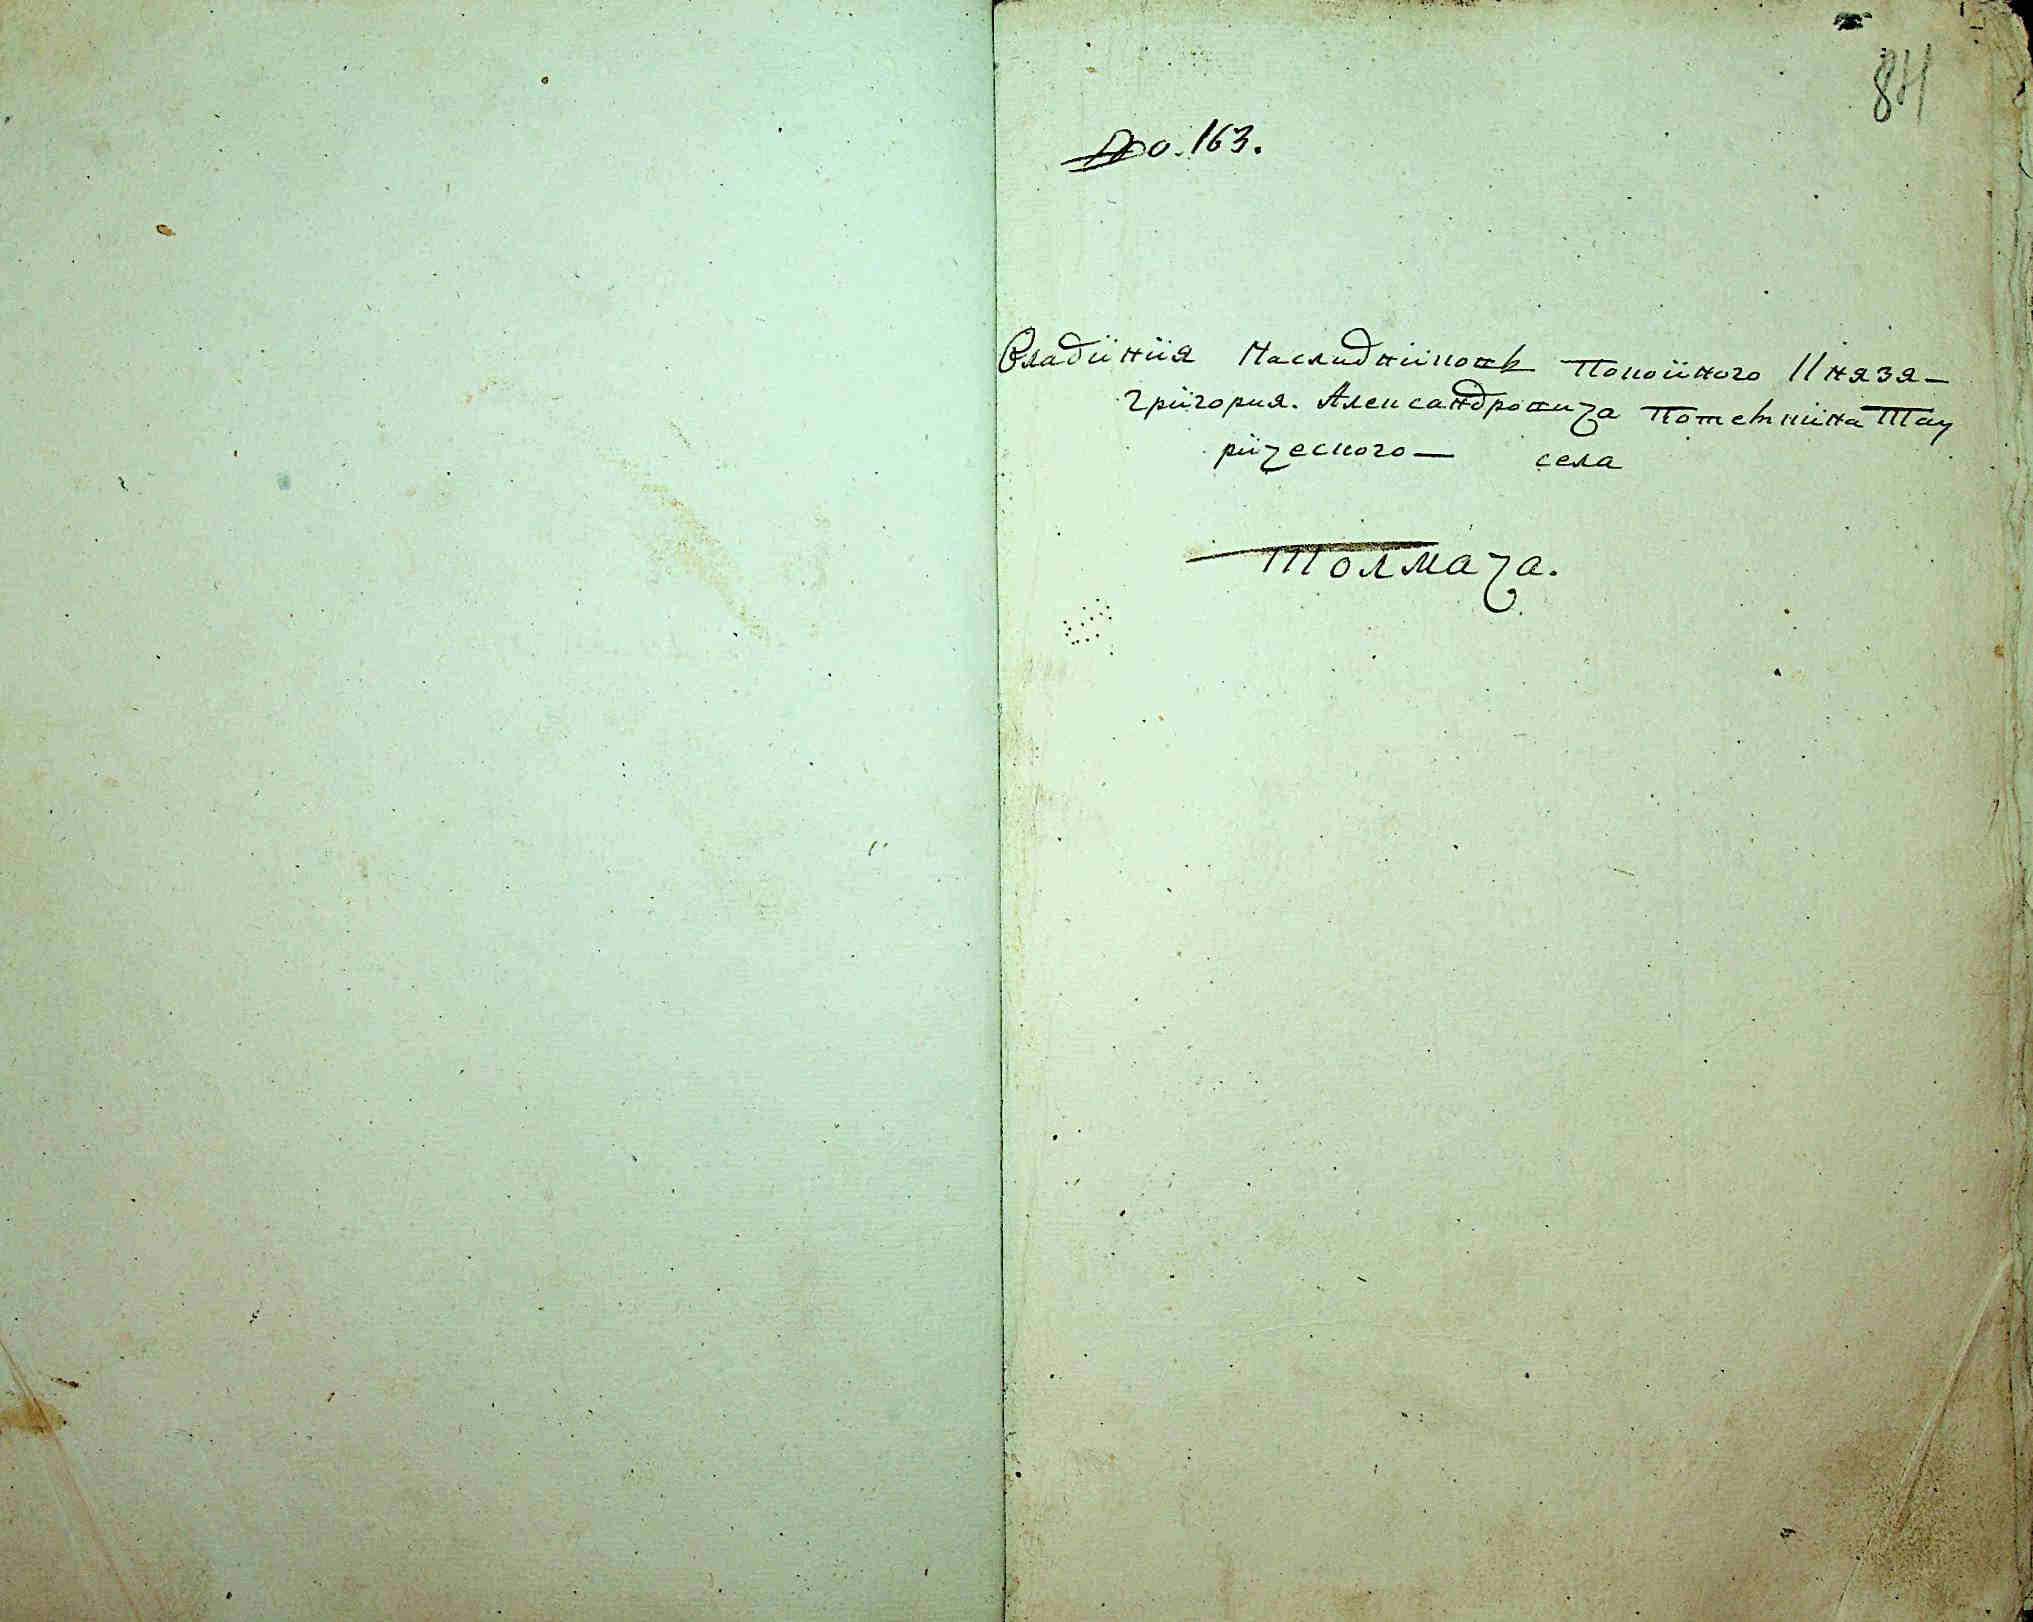 84
№ 163.
Владения Наследников Покойного Князя
Григория Александровича Потемкина Тав
рического села
Толмача.